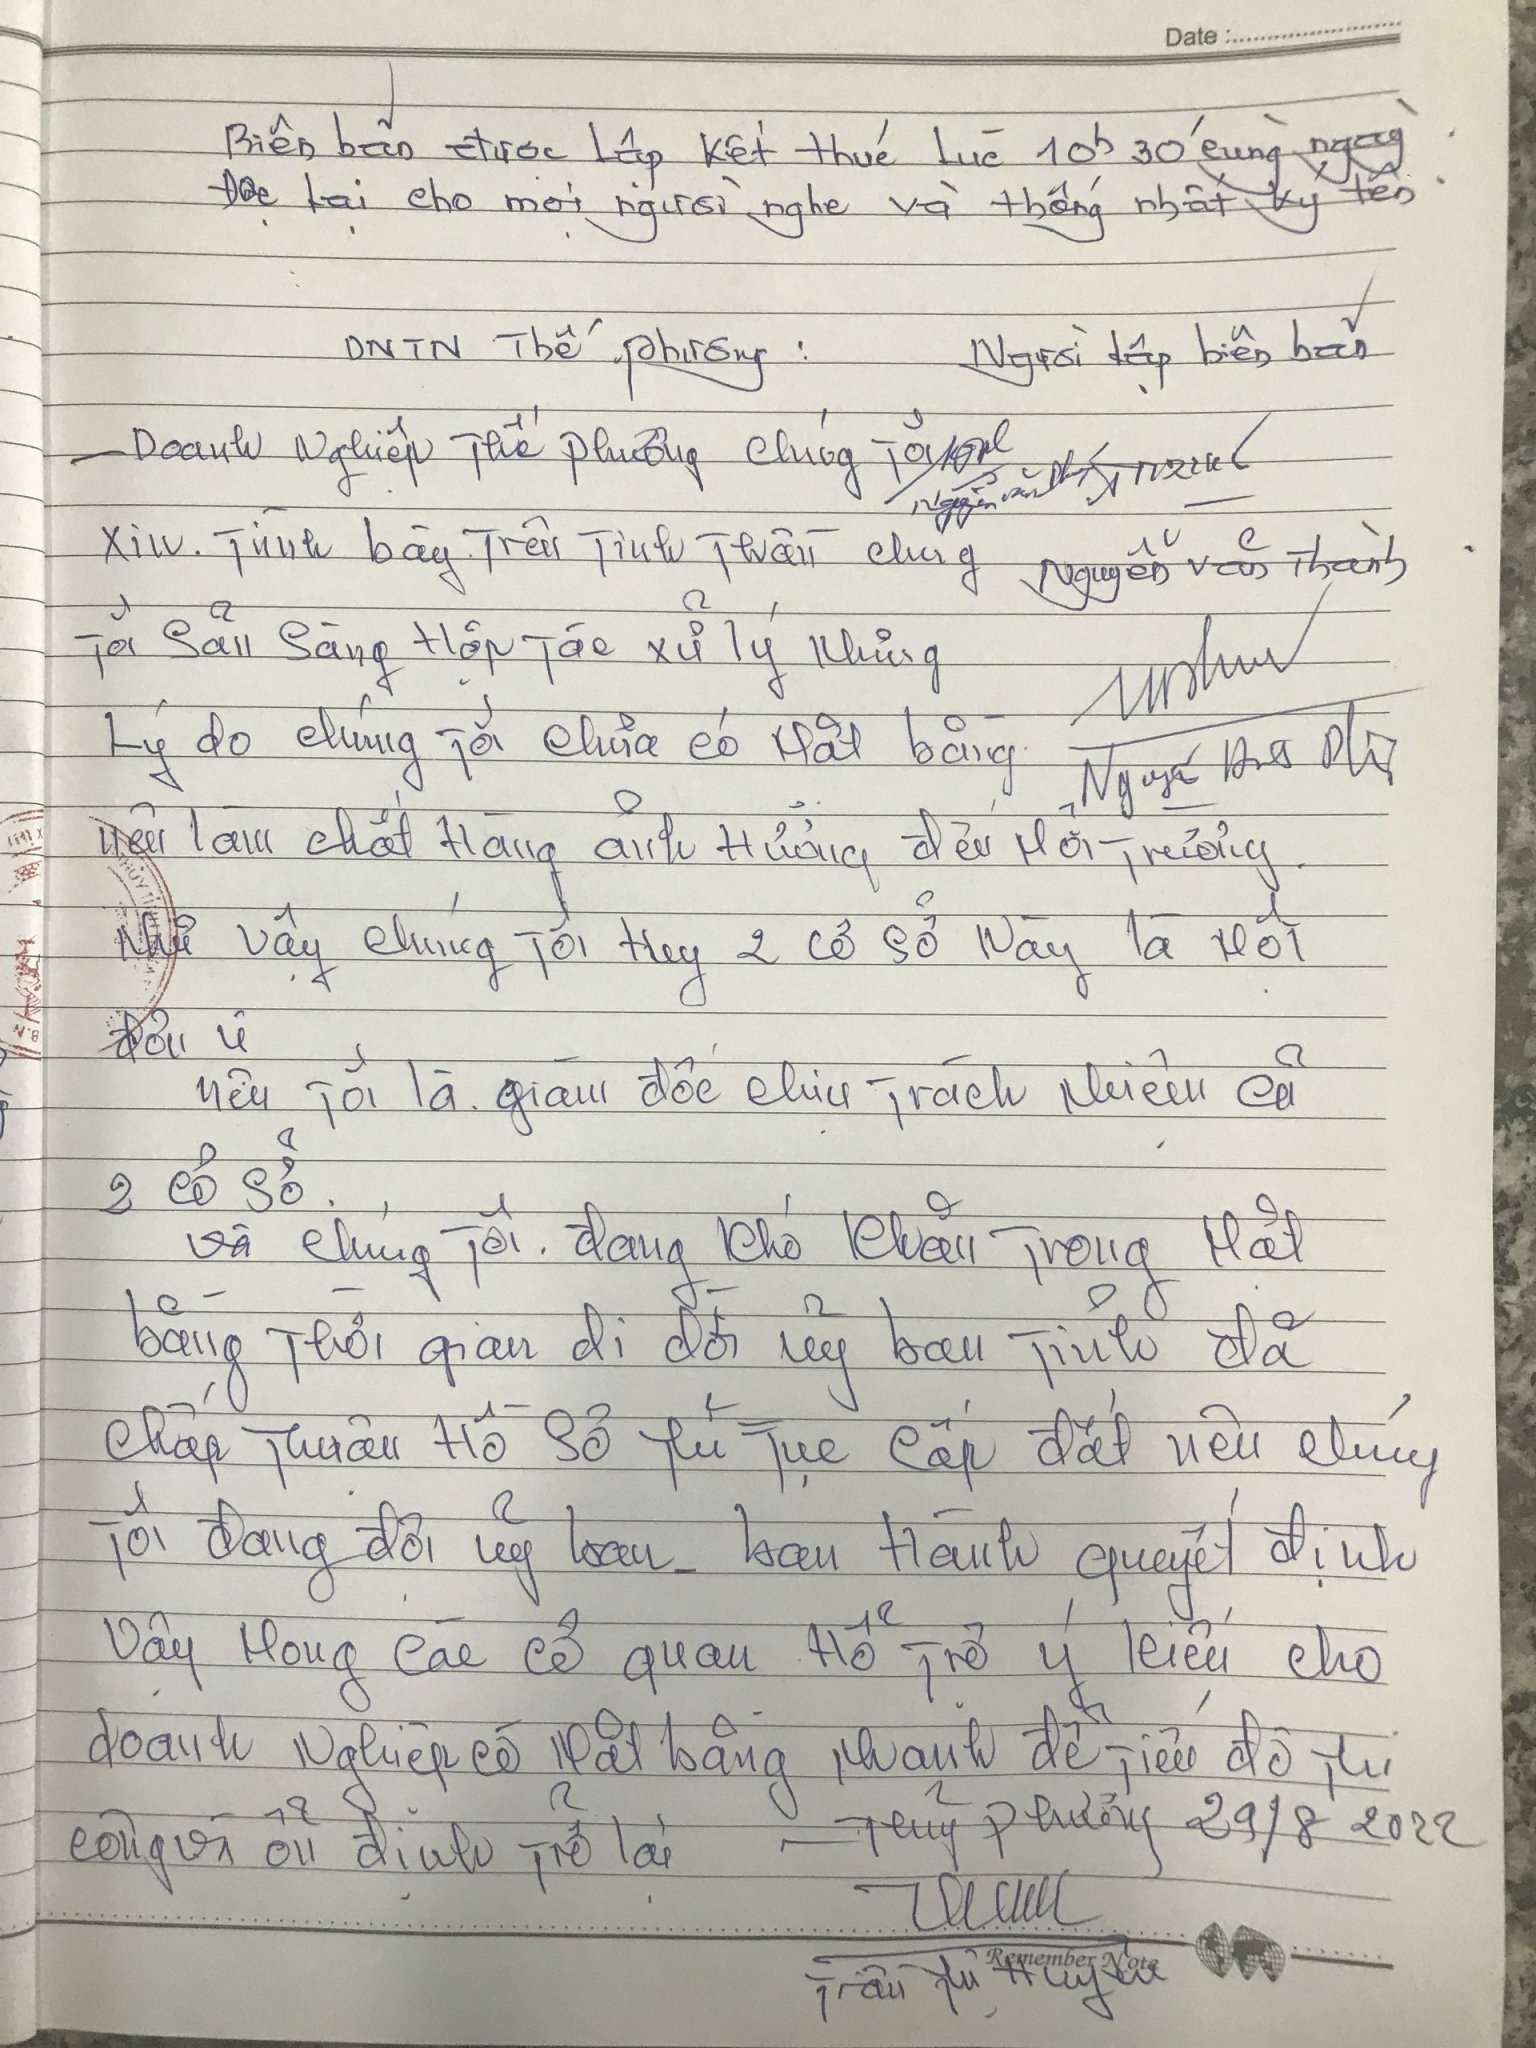 Date :
Biên bản được lập kết thúc lúc 10h 30' cùng ngày
đọc lại cho mọi người nghe và thống nhất ký tên
DNTN Thế Phương : Người lập biên bản
- Doanh Nghiệp Thế Phương chúng Tôi
Nguyễn văn
Xin. Trình bày Trên Tinh Thần chúng
Nguyễn Văn Thành
Tôi Sẵn Sàng Hợp Tác xử lý Nhưng
Lý do chúng Tôi chưa có Mặt bằng
nên làm chất Hàng ảnh Hưởng đến Môi Trường.
Như vậy chúng Tôi Huy 2 cơ sở Này là Một
đơn vị
nên Tôi là giám đốc chịu Trách Nhiệm cả
2 cơ sở.
và chúng Tôi. đang khó khăn Trong Mặt
bằng Thời gian di dời ủy ban Tỉnh đã
chấp Thuận Hồ Sơ Thủ Tục cấp đất nên chúng
Tôi đang đợi ủy ban - ban Hành quyết định
Vậy Mong các cơ quan Hỗ Trợ ý kiến cho
doanh Nghiệp có Mặt bằng Nhanh để Tiến độ Thi
công và ổn định Trở lại - Thủy Phương 29/8 2022
Remember Note
Trần Thị Huyền